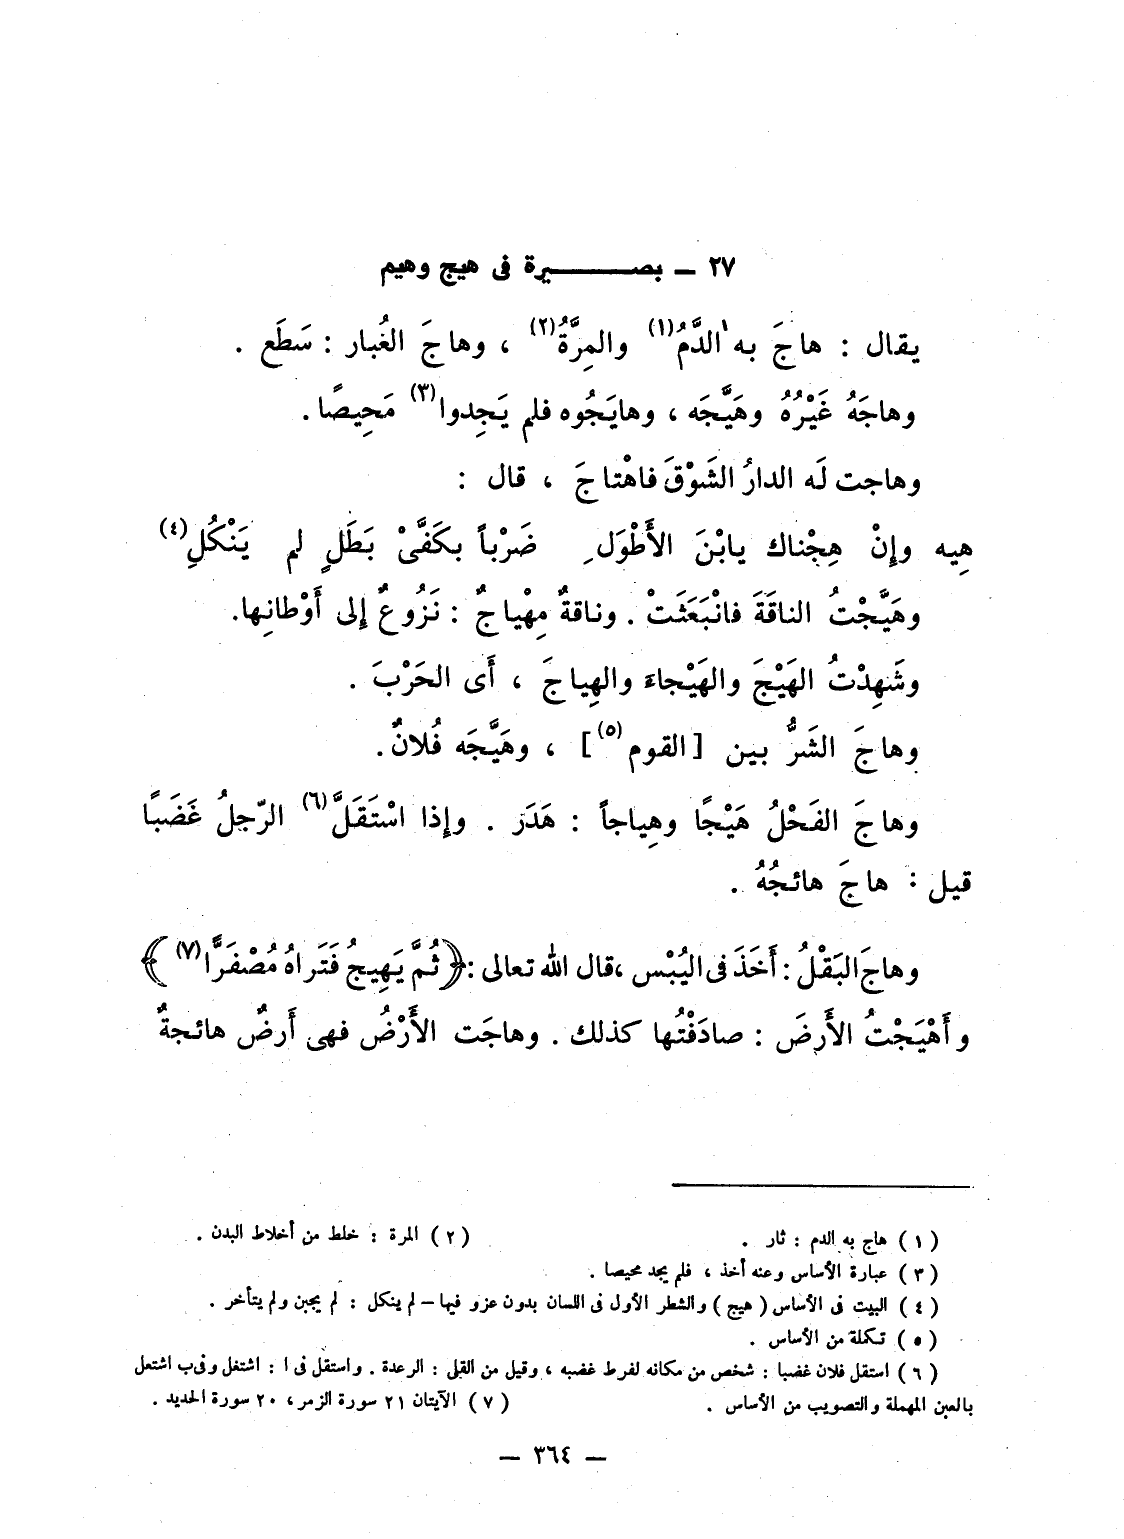 ٢٧ ـ بصـــــــيرة فى هيج وهيم
يقال : هاجَ به الدَّمُ(١) والمِرَّةُ(٢) ، وهاجَ الغُبار : سَطَع .
وهاجَهُ غَيْرُهُ وهَيَّجَه ، وهايَجُوه فلم يَجِدوا(٣) مَحِيصًا .
وهاجت لَه الدارُ الشَوْقَ فاهْتاجَ ، قال :
هِيه وإِنْ هِجْناك يابْنَ الأَطْوَلِ ضَرْباً بكَفَّىْ بَطَلٍ لم يَنْكُلِ(٤)
وهَيَّجْتُ الناقَةَ فانْبَعَثَتْ . وناقةٌ مِهْياجٌ : نَزُوعٌ إِلى أَوْطانِها.
وشَهِدْتُ الهَيْجَ والهَيْجاءَ والهِياجَ ، أَى الحَرْبَ .
وهاجَ الشَرُّ بين [القوم(٥)] ، وهَيَّجَه فُلانٌ .
وهاجَ الفَحْلُ هَيْجًا وهِياجاً : هَدَر . وإِذا اسْتَقَلَّ(٦) الرّجلُ غَضَبًا
قيل : هاجَ هائجُهُ .
وهاجَ البَقْلُ : أَخَذَ فى اليُبْس ، قال الله تعالى : ﴿ثُمَّ يَهِيجُ فَتَراهُ مُصْفَرًّا(٧)﴾
وأَهْيَجْتُ الأَرضَ : صادَفْتُها كذلك . وهاجَت الأَرْضُ فهى أَرضٌ هائجةٌ
(١) هاج به الدم : ثار . (٢) المرة : خلط من أخلاط البدن .
(٣) عبارة الأساس وعنه أخذ ، فلم يجد محيصا .
(٤) البيت فى الأساس (هيج) والشطر الأول فى اللسان بدون عزو فيها – لم ينكل : لم يجبن ولم يتأخر .
(٥) تكلة من الأساس .
(٦) استقل فلان غضبا : شخص من مكانه لفرط غضبه ، وقيل من القل : الرعدة . واستقل فى ا : اشتغل وفى ب اشتعل
بالعين المهملة والتصويب من الأساس . (٧) الآيتان ٢١ سورة الزمر ، ٢٠ سورة الحديد .
— ٣٦٤ —